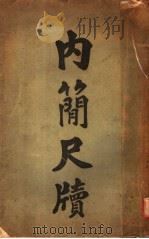 研狗
内簡尺牘